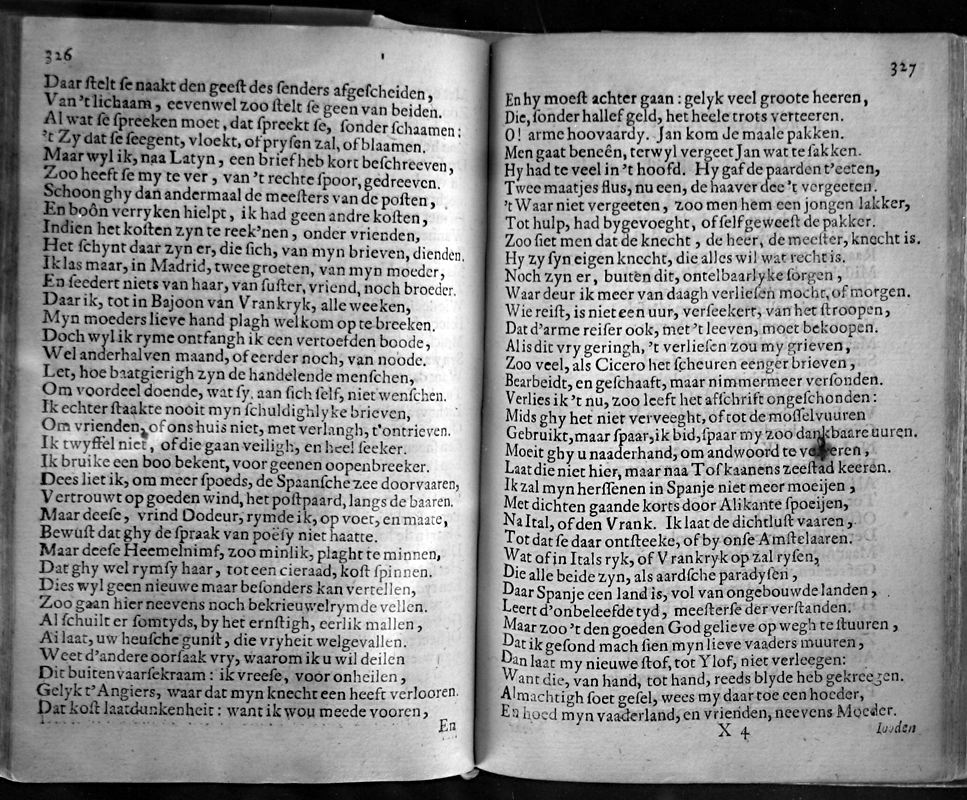 326
Daar ſtelt ſe naakt den geeſt des ſenders afgeſcheiden,
Van 't lichaam, eevenwel zoo ſtelt ſe geen van beiden.
Al wat ſe ſpreeken moet, dat ſpreekt ſe, ſonder ſchaamen:
't Zy dat ſe ſeegent, vloekt, of pryſen zal, of blaamen.
Maar wyl ik, naa Latyn, een brief heb kort beſchreeven,
Zoo heeft ſe my te ver, van 't rechte ſpoor, gedreeven.
Schoon ghy dan andermaal de meeſters van de poſten,
En boôn verryken hielpt, ik had geen andre koſten,
Indien het koſten zyn te reek'nen, onder vrienden,
Het ſchynt daar zyn er, die ſich, van myn brieven, dienden.
Ik las maar, in Madrid, twee groeten, van myn moeder,
En ſeedert niets van haar, van ſuſter, vriend, noch broeder.
Daar ik, tot in Bajoon van Vrankryk, alle weeken,
Myn moeders lieve hand plagh welkom op te breeken.
Doch wyl ik ryme ontfangh ik een vertoefden boode,
Wel anderhalven maand, of eerder noch, van noode.
Let, hoe baatgierigh zyn de handelende menſchen,
Om voordeel doende, wat ſy, aan ſich ſelf, niet wenſchen.
Ik echter ſtaakte nooit myn ſchuldighlyke brieven,
Om vrienden, of ons huis niet, met verlangh, t'ontrieven.
Ik twyffel niet, of die gaan veiligh, en heel ſeeker.
Ik bruike een boo bekent, voor geenen oopenbreeker.
Dees liet ik, om meer ſpoeds, de Spaanſche zee doorvaaren,
Vertrouwt op goeden wind, het poſtpaard, langs de baaren.
Maar deeſe, vrind Dodeur, rymde ik, op voet, en maate,
Bewuſt dat ghy de ſpraak van poëſy niet haatte.
Maar deeſe Heemelnimf, zoo minlik, plaght te minnen,
Dat ghy wel rymſy haar, tot een cieraad, koſt ſpinnen.
Dies wyl geen nieuwe maar beſonders kan vertellen,
Zoo gaan hier neevens noch bekrieuwelrymde vellen.
Al ſchuilt er ſomtyds, by het ernſtigh, eerlik mallen,
Ai laat, uw heuſche gunſt, die vryheit welgevallen.
Weet d'andere oorſaak vry, waarom ik u wil deilen
Dit buitenvaarſekraam: ik vreeſe, voor onheilen,
Gelyk t'Angiers, waar dat myn knecht een heeft verlooren.
Dat koſt laatdunkenheit: want ik wou meede vooren,
En
327
En hy moeſt achter gaan: gelyk veel groote heeren,
Die, ſonder hallef geld, het heele trots verteeren.
O! arme hoovaardy. Jan kom de maale pakken.
Men gaat beneên, terwyl vergeet Jan wat te ſakken.
Hy had te veel in 't hoofd. Hy gaf de paarden t'eeten,
Twee maatjes flus, nu een, de haaver dee 't vergeeten.
't Waar niet vergeeten, zoo men hem een jongen lakker,
Tot hulp, had bygevoeght, of ſelf geweeſt de pakker.
Zoo ſiet men dat de knecht, de heer, de meeſter, knecht is.
Hy zy ſyn eigen knecht, die alles wil wat recht is.
Noch zyn er, buiten dit, ontelbaarlyke ſorgen,
Waar deur ik meer van daagh verlieſen mocht, of morgen.
Wie reiſt, is niet een uur, verſeekert, van het ſtroopen,
Dat d'arme reiſer ook, met 't leeven, moet bekoopen.
Al is dit vry geringh, 't verlieſen zou my grieven,
Zoo veel, als Cicero het ſcheuren eenger brieven,
Bearbeidt, en geſchaaft, maar nimmermeer verſonden.
Verlies ik 't nu, zoo leeft het afſchrift ongeſchonden:
Mids ghy het niet verveeght, of tot de moſſelvuuren
Gebruikt, maar ſpaar, ik bid, ſpaar my zoo dankbaare uuren.
Moeit ghy u naaderhand, om andwoord te veeren,
Laat die niet hier, maar naa Tofkaanens zeeſtad keeren.
Ik zal myn herſſenen in Spanje niet meer moeijen,
Met dichten gaande korts door Alikante ſpoeijen,
Na Ital, of den Vrank. Ik laat de dichtluſt vaaren,
Tot dat ſe daar ontſteeke, of by onſe Amſtelaaren.
Wat of in Itals ryk, of Vrankryk op zal ryſen,
Die alle beide zyn, als aardſche paradyſen,
Daar Spanje een land is, vol van ongebouwde landen,
Leert d'onbeleefde tyd, meeſterſe der verſtanden.
Maar zoo 't den goeden God gelieve op wegh te ſtuuren,
Dat ik geſond mach ſien myn lieve vaaders muuren,
Dan laat my nieuwe ſtof, tot Ylof, niet verleegen:
Want die, van hand, tot hand, reeds blyde heb gekreegen.
Almachtigh ſoet geſel, wees my daar toe een hoeder,
En hoed myn vaaderland, en vrienden, neevens Moeder.
X 4